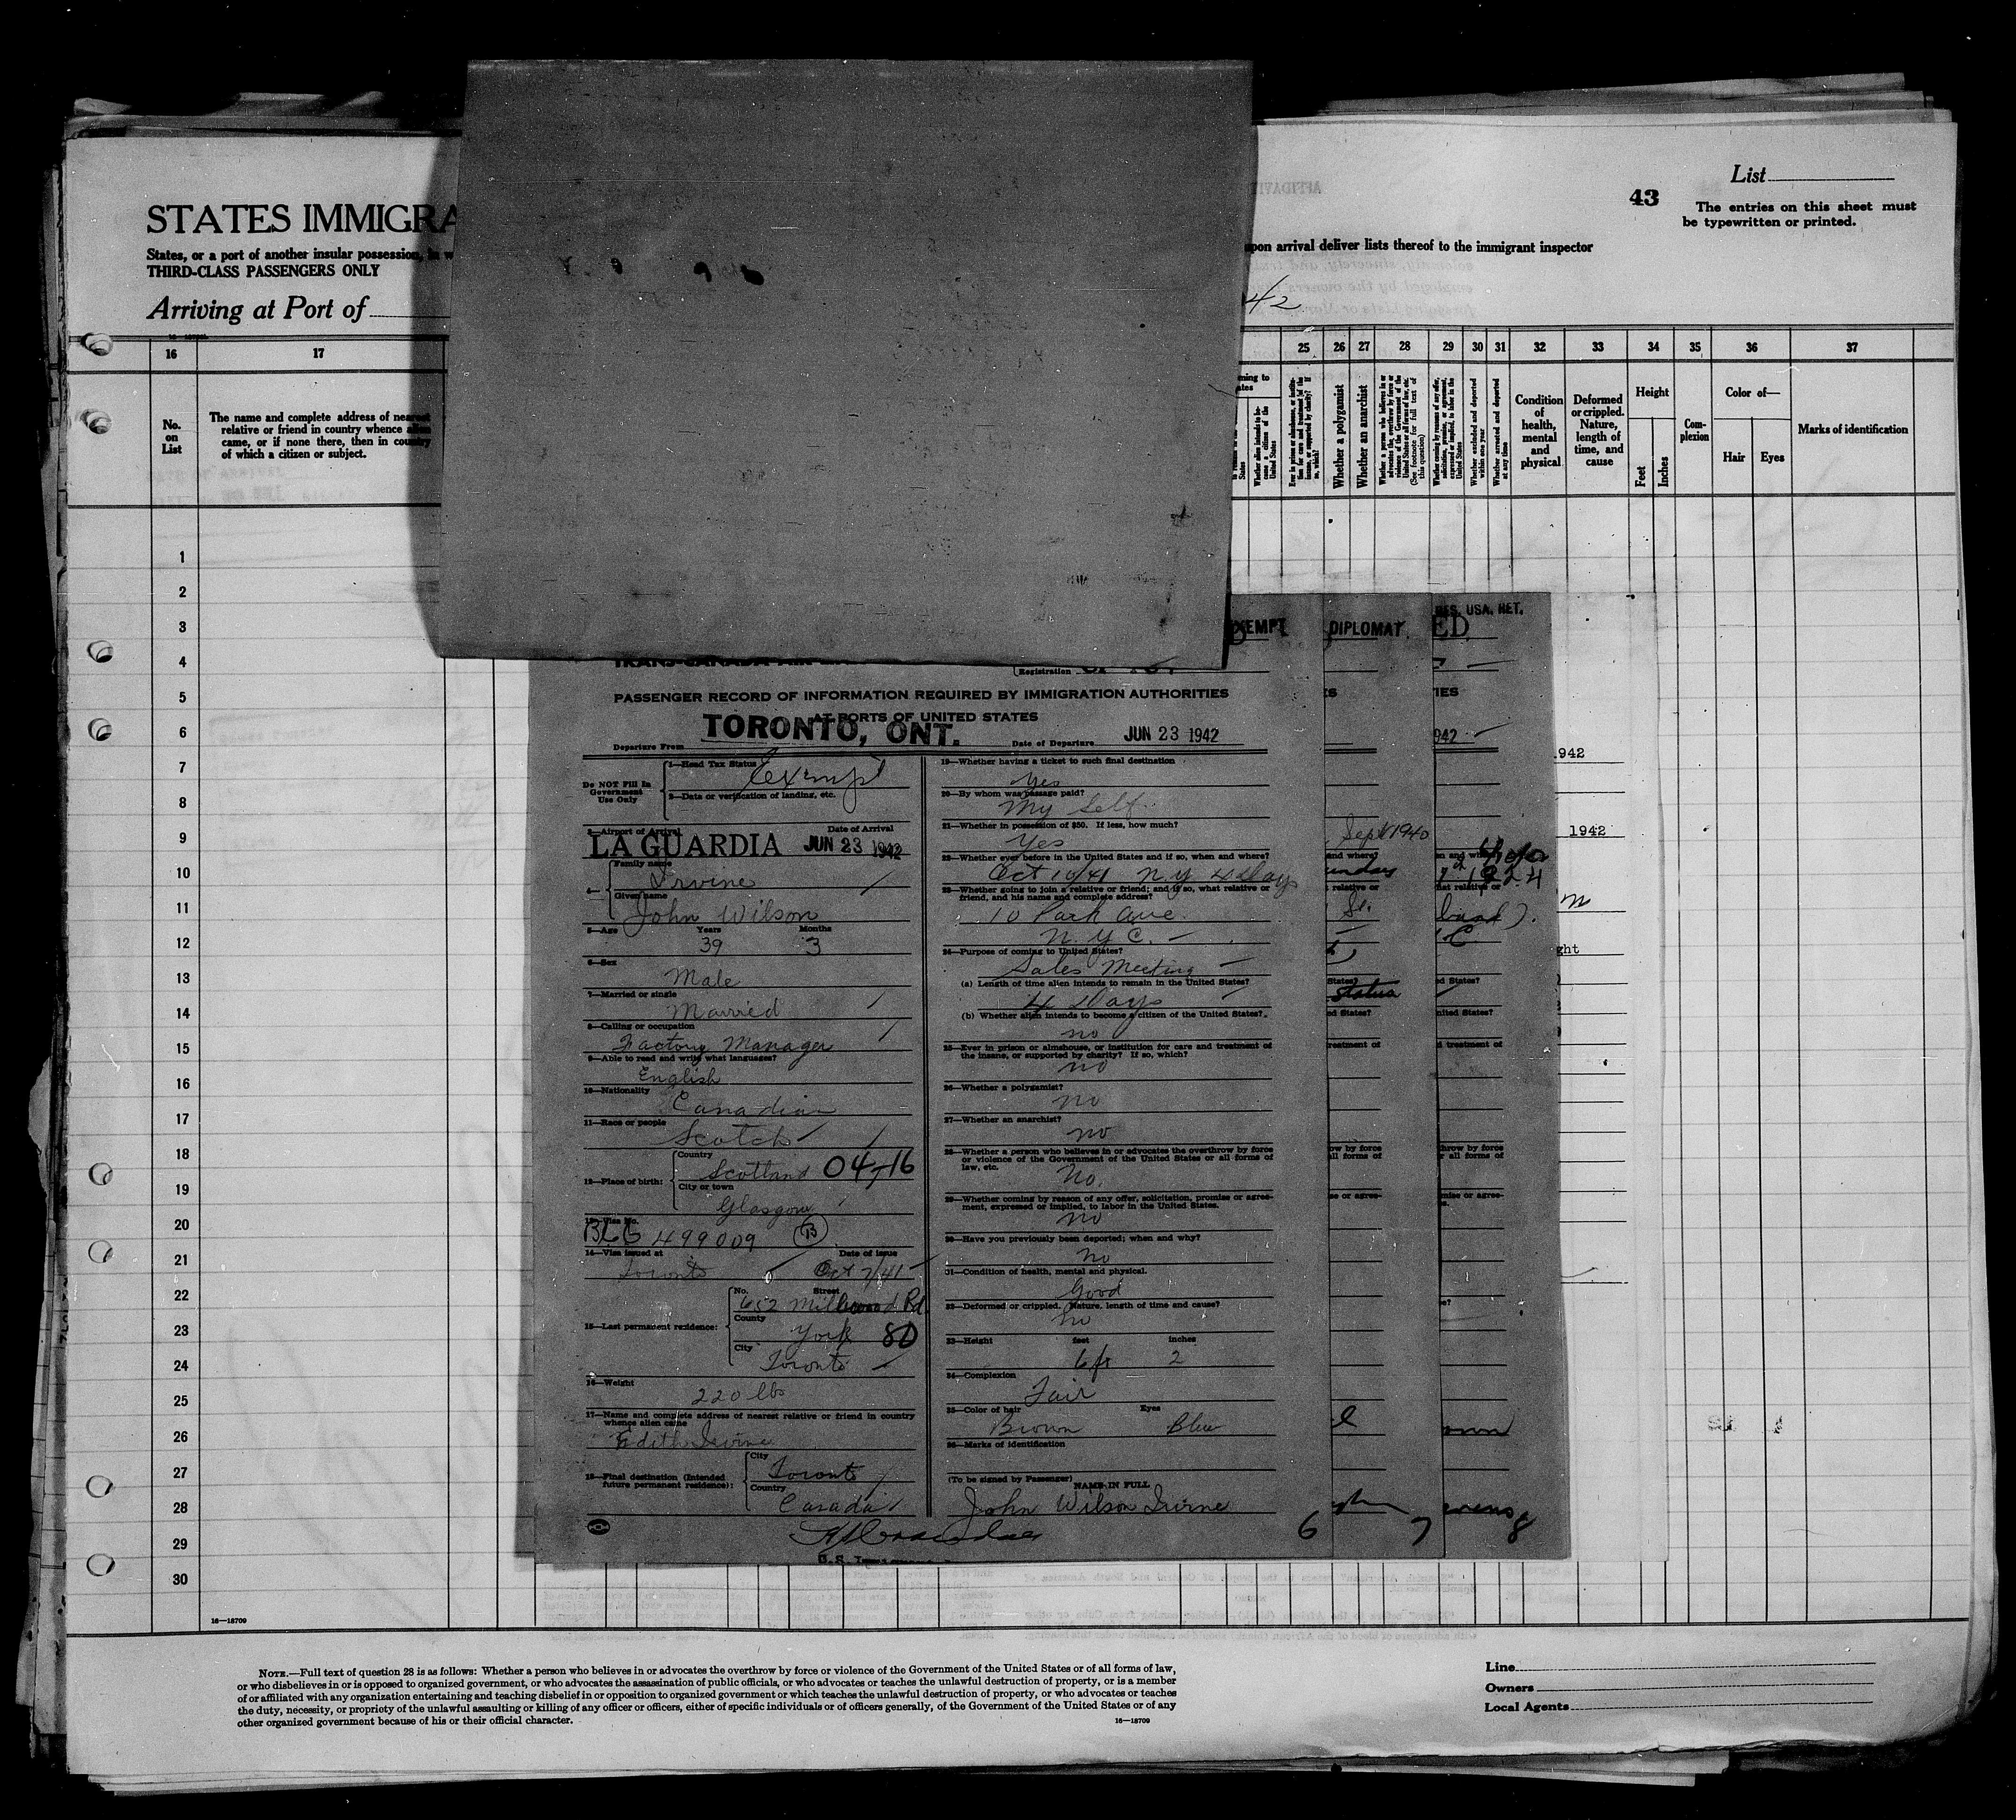 List
43
The entries on this sheet must
be typewritten or printed.
STATES IMMIGRA
States, or a port of another insular possession, in w
pon arrival deliver lists thereof to the immigrant inspector
THIRD-CLASS PASSENGERS ONLY
Arriving at Port of
42
16 17 25 26 27 28 29 30 31 32 33 34 35 36 37
No.
on
List
The name and complete address of nearest
relative or friend in country whence alien
came, or if none there, then in country
of which a citizen or subject.
Whether a polygamist
Whether an anarchist
Condition
of
health,
mental
and
physical
Deformed
or crippled.
Nature,
length of
time, and
cause
Height
Feet
Inches
Com-
plexion
Color of—
Hair Eyes
Marks of identification
1
2
3
4
5
6
7
8
9
10
11
12
13
14
15
16
17
18
19
20
21
22
23
24
25
26
27
28
29
30
XEMPT
DIPLOMAT
ED
USA. RET.
Registration
PASSENGER RECORD OF INFORMATION REQUIRED BY IMMIGRATION AUTHORITIES
AT PORTS OF UNITED STATES
Departure From TORONTO, ONT. Date of Departure JUN 23 1942
Do NOT Fill In
Government
Use Only
1—Head Tax Status Exempt
2—Data or verification of landing, etc.
3—Airport of Arrival Date of Arrival
LA GUARDIA JUN 23 1942
4—
Family name
Irvine
Given name
John Wilson
5—Age Years Months
39 3
6—Sex
Male
7—Married or single
Married
8—Calling or occupation
Factory Manager
9—Able to read and write what languages?
English
10—Nationality
Canadian
11—Race or people
Scotch
12—Place of birth:
Country
Scotland 04-16
City or town
Glasgow
13—Visa No.
499009 B
14—Visa issued at Date of issue
Toronto Oct 7/41
15—Last permanent residence:
No. Street
652 Millwood Rd
County
York 80
City
Toronto
16—Weight
220 lbs
17—Name and complete address of nearest relative or friend in country
whence alien came
Edith Irvine
18—Final destination (Intended
future permanent residence):
City
Toronto
Country
Canada
19—Whether having a ticket to such final destination
Yes
20—By whom was passage paid?
My Self
21—Whether in possession of $50. If less, how much?
Yes
22—Whether ever before in the United States and if so, when and where?
Oct 10/41 N.Y 4 Days
23—Whether going to join a relative or friend; and if so, what relative or
friend, and his name and complete address?
10 Park Ave.
N.Y C.
24—Purpose of coming to United States?
Sales Meeting
(a) Length of time alien intends to remain in the United States?
4 Days
(b) Whether alien intends to become a citizen of the United States?
no
25—Ever in prison or almshouse, or institution for care and treatment of
the insane, or supported by charity? If so, which?
no
26—Whether a polygamist?
no
27—Whether an anarchist?
no
28—Whether a person who believes in or advocates the overthrow by force
or violence of the Government of the United States or all forms of
law, etc.
No.
29—Whether coming by reason of any offer, solicitation, promise or agree-
ment, expressed or implied, to labor in the United States.
no
30—Have you previously been deported; when and why?
No
31—Condition of health, mental and physical.
Good
32—Deformed or crippled. Nature, length of time and cause?
no
33—Height feet inches
6 ft 2
34—Complexion
Fair
35—Color of hair Eyes
Brown Blue
36—Marks of identification
(To be signed by Passenger)
NAME IN FULL
John Wilson Irvine
6
7
8
Sept 1940
942
1942
1942
16—18709
NOTE.—Full text of question 28 is as follows: Whether a person who believes in or advocates the overthrow by force or violence of the Government of the United States or of all forms of law,
or who disbelieves in or is opposed to organized government, or who advocates the assassination of public officials, or who advocates or teaches the unlawful destruction of property, or is a member
of or affiliated with any organization entertaining and teaching disbelief in or opposition to organized government or which teaches the unlawful destruction of property, or who advocates or teaches
the duty, necessity, or propriety of the unlawful assaulting or killing of any officer or officers, either of specific individuals or of officers generally, of the Government of the United States or of any
other organized government because of his or their official character.
16—18709
Line
Owners
Local Agents